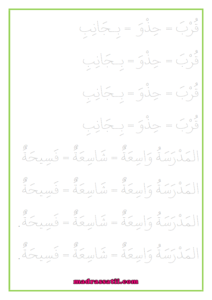 قُرْبَ = حِذْوَ = بِجَانِبِ
قُرْبَ = حِذْوَ = بِجَانِبِ
قُرْبَ = حِذْوَ = بِجَانِبِ
قُرْبَ = حِذْوَ = بِجَانِبِ
المَدْرَسَةُ وَاسِعَةٌ = شَاسِعَةٌ = فَسِيحَةٌ
المَدْرَسَةُ وَاسِعَةٌ = شَاسِعَةٌ = فَسِيحَةٌ
المَدْرَسَةُ وَاسِعَةٌ = شَاسِعَةٌ = فَسِيحَةٌ.
المَدْرَسَةُ وَاسِعَةٌ = شَاسِعَةٌ = فَسِيحَةٌ.
madrassatii.com